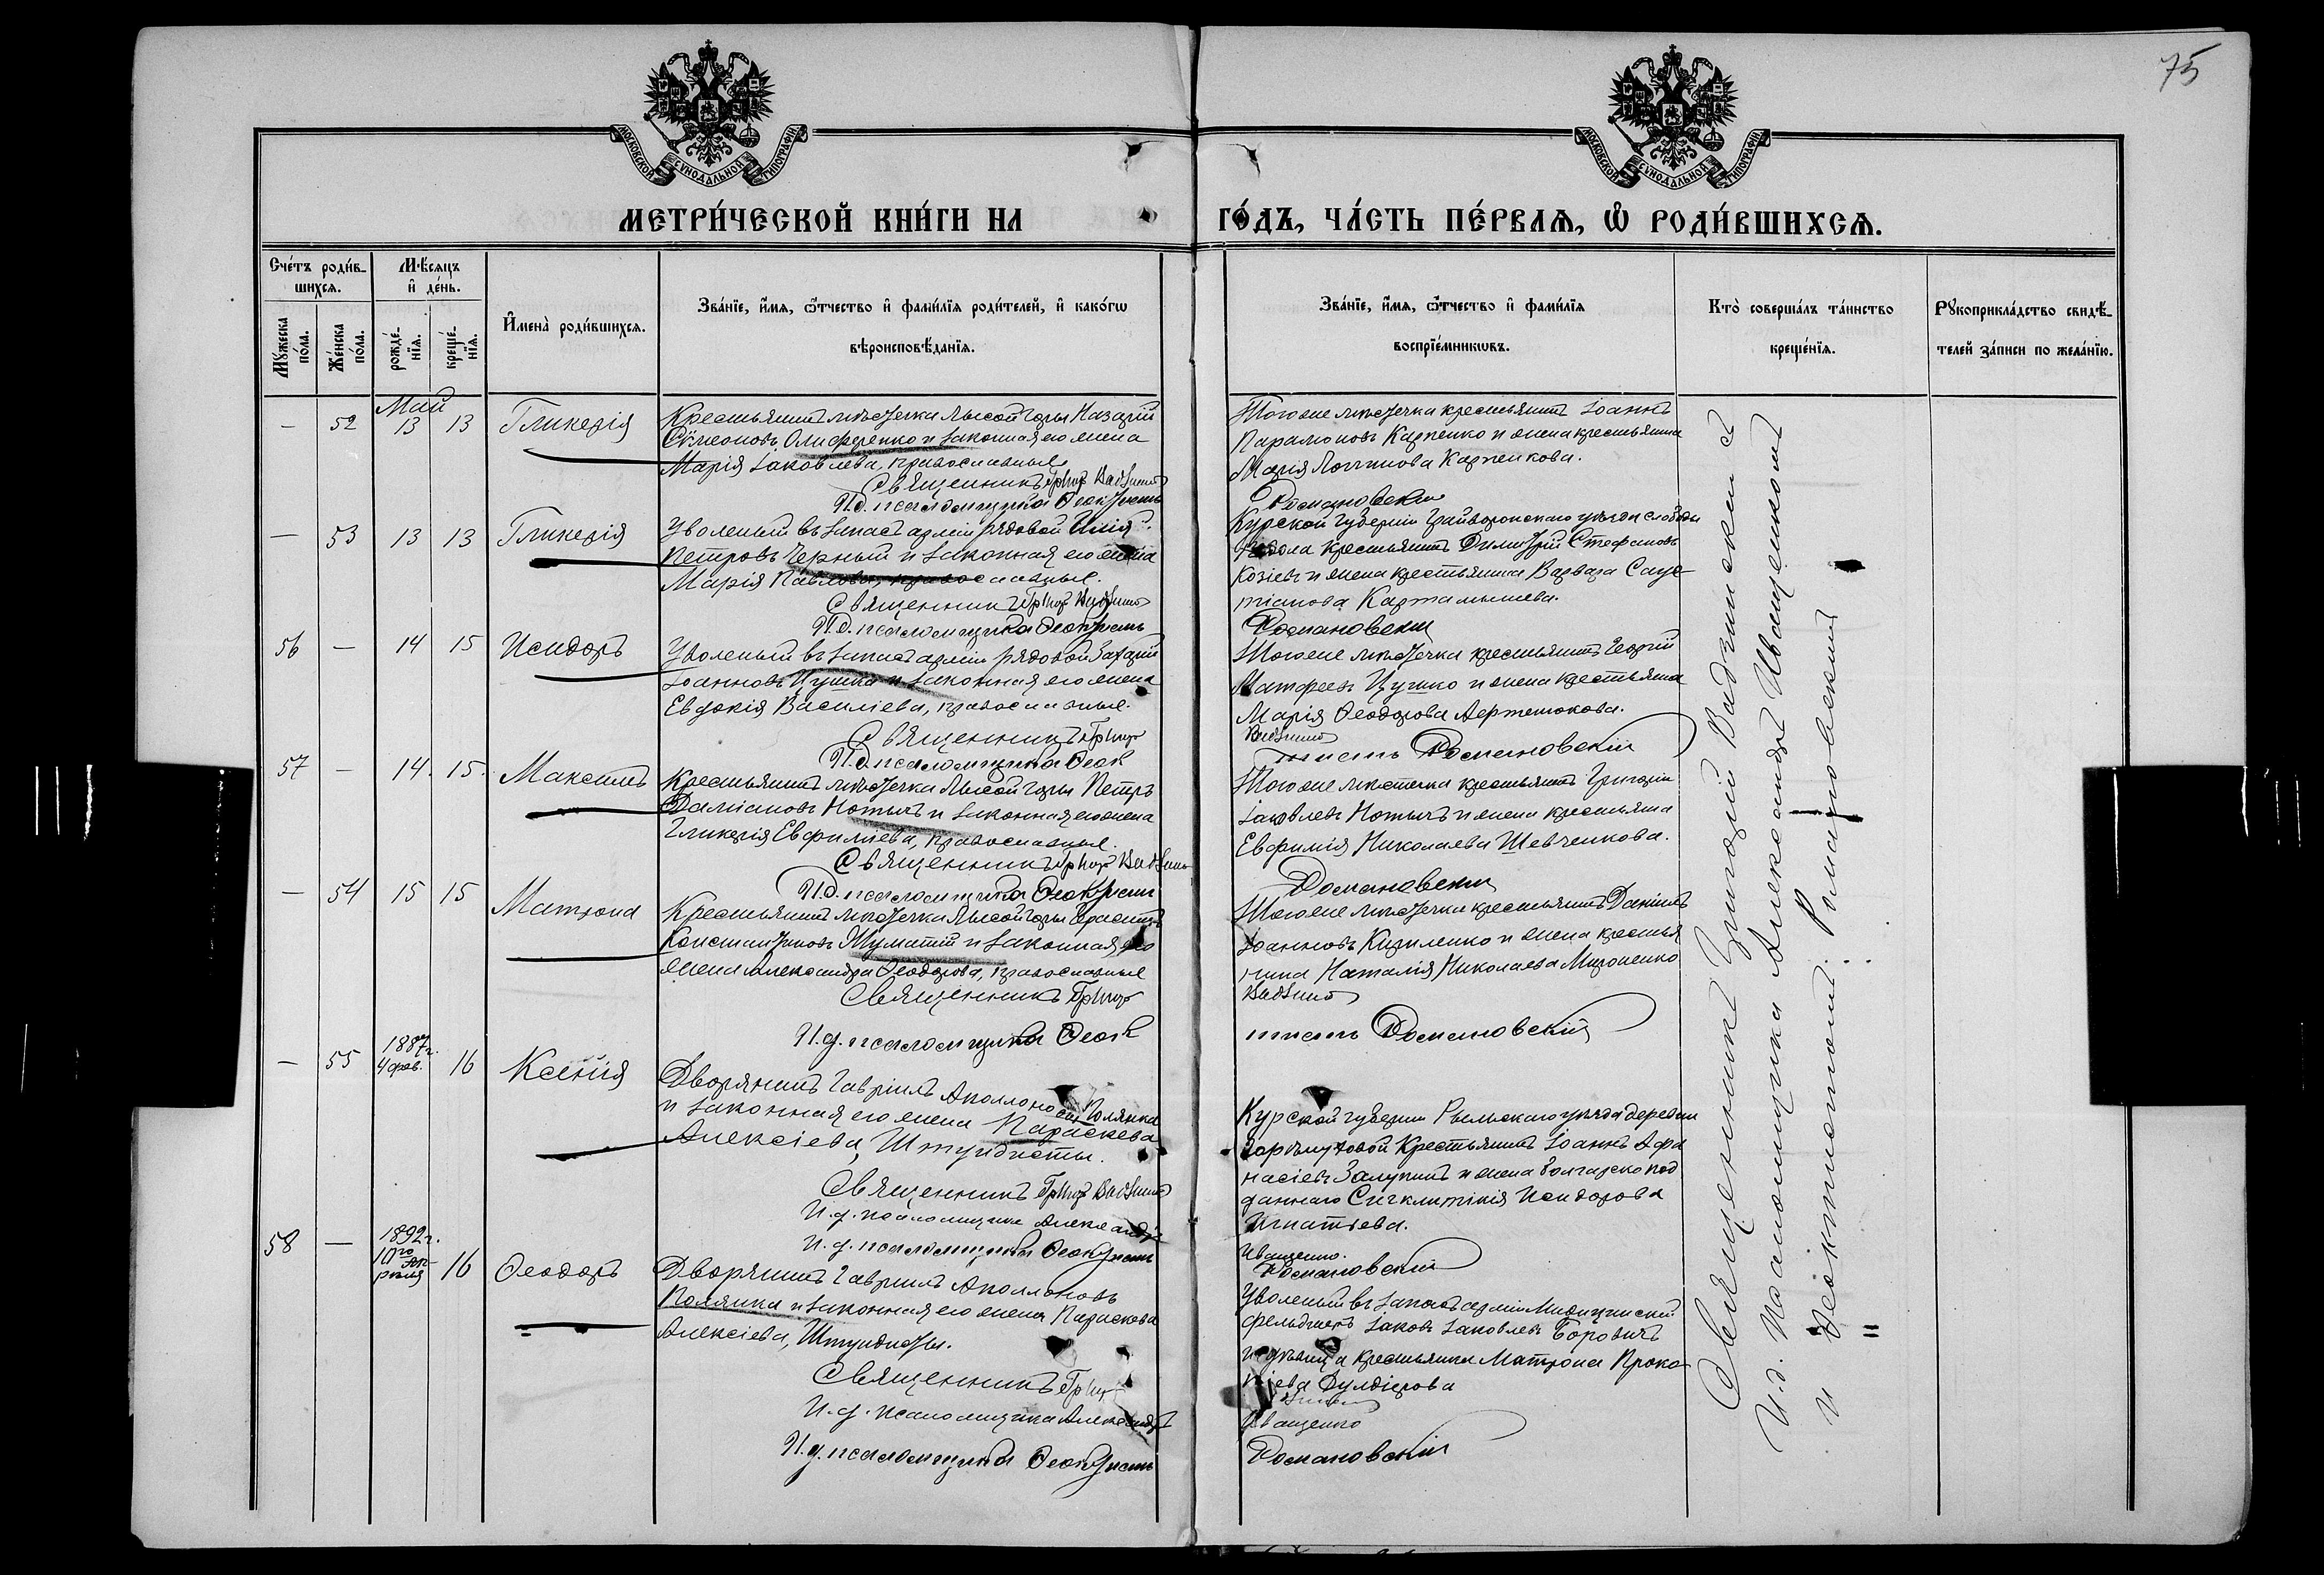 75
МОСКОВСКОЙ СѴНОДАЛЬНОЙ ТИПОГРАФІИ
МОСКОВСКОЙ СѴНОДАЛЬНОЙ ТИПОГРАФІИ
МЕТРИ́ЧЕСКОЙ КНИ́ГИ НА
ГО́ДЪ, ЧА́СТЬ ПЕ́РВАѦ, Ѡ҆ РОДИ́ВШИХСѦ.
Сче́тъ роди́в-
шихсѧ.
Мꙋ́жеска по́ла.
Же́нска по́ла.
Мѣ́сѧцъ
и҆ де́нь.
рожде́-
нїѧ.
креще́-
нїѧ.
И҆мена̀ роди́вшихсѧ.
Зва́нїе, и҆́мѧ, ѻ҆́тчество и҆ фами́лїѧ роди́телей, и҆ како́гѡ
вѣроисповѣ́данїѧ.
Зва́нїе, и҆́мѧ, ѻ҆́тчество и҆ фами́лїѧ
воспрїе́мникѡвъ.
Кто̀ соверша́лъ та́инство
креще́нїѧ.
Рꙋкоприкла́дство свидѣ́-
телей за́писи по жела́нїю.
Май
— 52 13 13 Гликерія
Крестьянинъ мѣстечка Лысой Горы Назарій
Сѵмеоновъ Олиференко и законная его жена
Марія Іаковлева, православные
Священникъ Григ Вадзин
И.д. псаломщика Ѳеоктистъ
Тогоже мѣстечка крестьянинъ Іоаннъ
Парамоновъ Карпенко и жена крестьянина
Марія Карпенкова.
Романовскій
— 53 13 13 Гликерія
Уволеный въ запасъ арміи рядовой Илія
Петровъ Черный и законная его жена
Марія Павлова, православные.
Священникъ Григ Вадзин
И.д. псаломщика Ѳеоктистъ
Курской губерніи Грайворонскаго уѣзда слободы
крестьянинъ Димитрій Стефановъ
Козіевъ и жена крестьянина Варвара
Картамышева.
Романовскій
56 — 14 15 Исидоръ
Уволеный въ запасъ арміи рядовой Захарій
Іоанновъ Цушка и законная его жена
Евдокія Василіева, православные.
Священникъ Григ
И.д. псаломщика Ѳеок
Тогоже мѣстечка крестьянинъ Георгій
Матфеевъ Цушко и жена крестьянина
Марія Ѳеодорова
Вадзин
тистъ Романовскій
57 — 14. 15. Максимъ
Крестьянинъ мѣстечка Лысой Горы Петръ
Даміановъ Нотычъ и законная его жена
Гликерія Евфиміева, православные.
Священникъ Григ Вадзин
И.д. псаломщика Ѳеоктист
Тогоже мѣстечка крестьянинъ Григорій
Іаковлевъ Нотычъ и жена крестьянина
Евфимія Николаева Шевченкова.
Романовскій
— 54 15 15 Матрона
Крестьянинъ мѣстечка Лысой Горы
Константиновъ и законная его
жена Александра Ѳеодорова, православные
Священникъ Григ
И.д. псаломщика Ѳеок
Тогоже мѣстечка крестьянинъ Даніилъ
Іоанновъ Кириленко и жена крестья
нина Наталія Николаева Мироненко
Вадзин
тистъ Романовскій
— 55 1887г. 4 фев. 16 Ксенія
Дворянинъ Гавріилъ Аполлоновъ Полянка
и законная его жена Параскева
Алексіева, Штундисты.
Священникъ Григ Вадзин
И.д. псаломщика Александръ
И.д. псаломщика Ѳеоктист
Курской губерніи Рыльскаго уѣзда деревни
крестьянинъ Іоаннъ Афа
насіевъ Залупинъ и жена болгарско под
даннаго Сигклитикія Исидорова
Игнатьева.
Иващенко.
Романовскій
58 — 1892г. 10го Апрѣля 16 Ѳеодоръ
Дворянинъ Гавріилъ Аполлоновъ
Полянка и законная его жена Параскева
Алексіева, Штундисты.
Священникъ Григ
И.д. псаломщика Александръ
И.д. псаломщика Ѳеоктист
Уволеный въ запасъ арміи Медицинскій
фельдшеръ Іаковъ Іаковлевъ Боровичъ
и дѣвица крестьянка Матрона Проко
піева
Иващенко
Романовскій
Священникъ Григорій Вадзинскій
И.д. Псаломщика Александръ Иващенковъ
и Ѳеоктистъ Романовскій